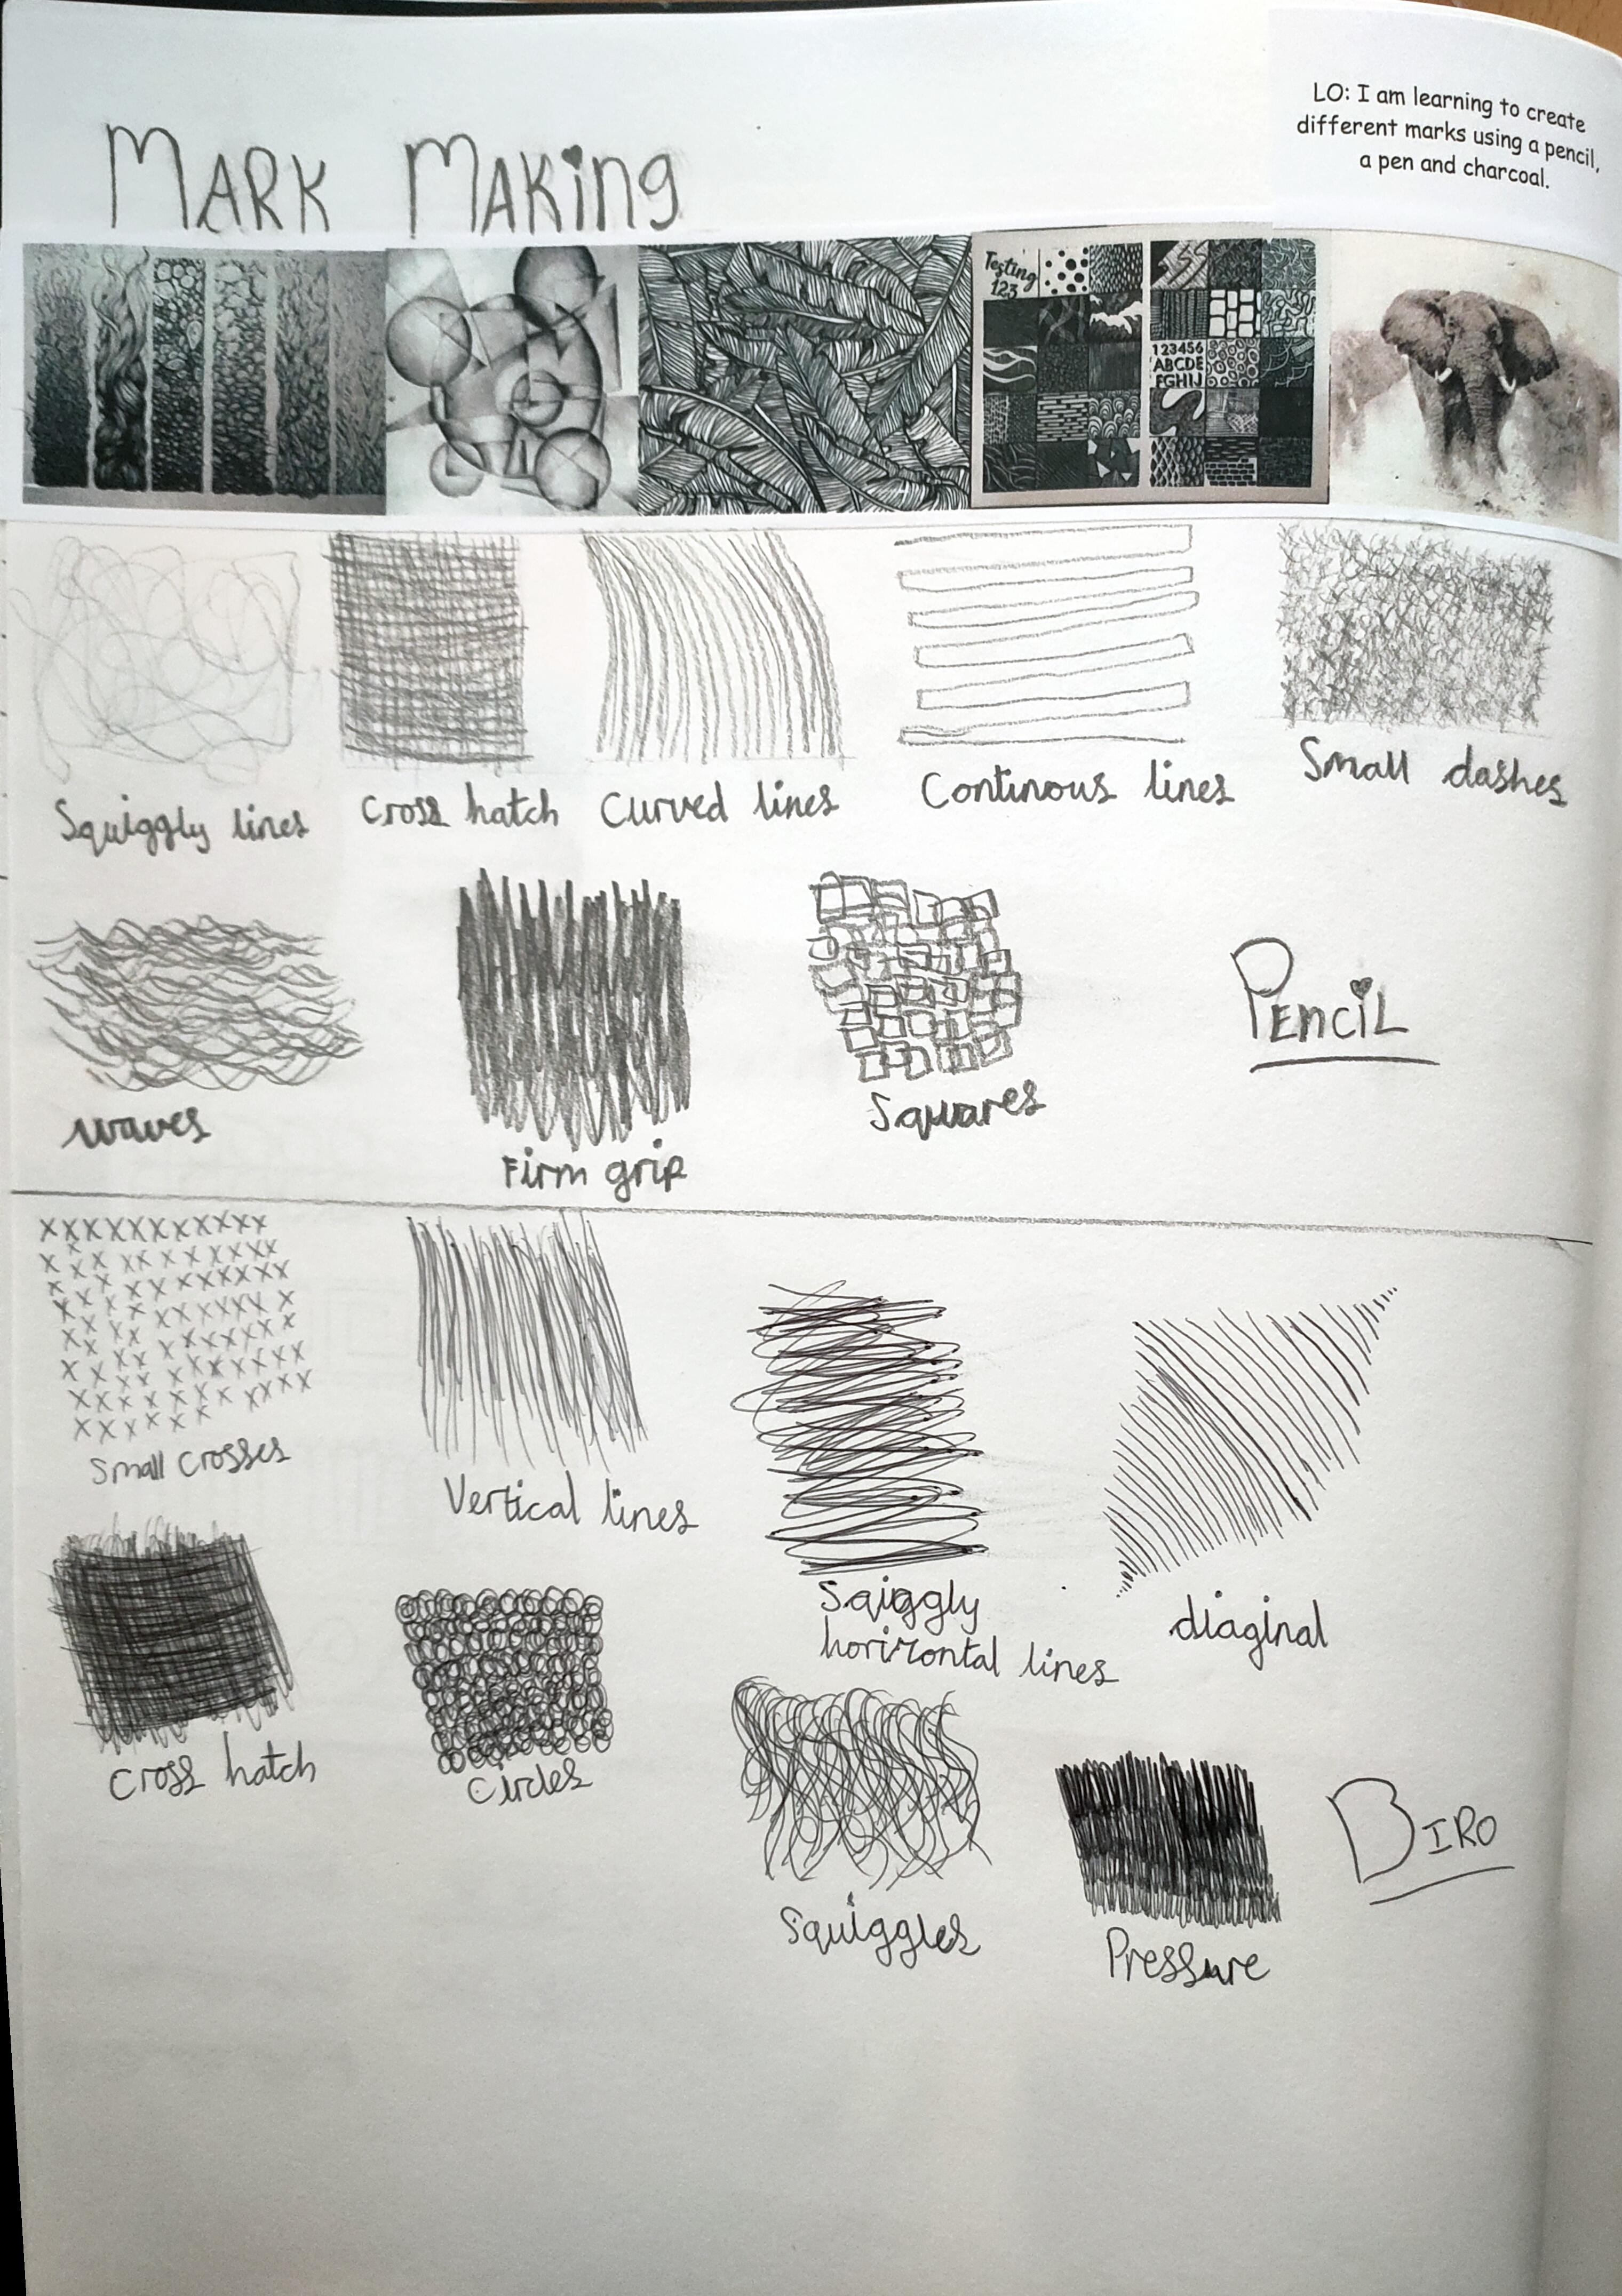 LO: I am learning to create
different marks using a pencil,
a pen and charcoal.
MARK MAKing
Testing
123
123456
ABCDE
FGHIJ
Squiggly lines
Cross hatch
Curved lines
Continous lines
Small dashes
waves
Firm grip
Squares
PEnciL
Small crosses
Vertical lines
Sqiggly
horizontal lines
diaginal
Cross hatch
Circles
Squiggles
Pressure
BIRO